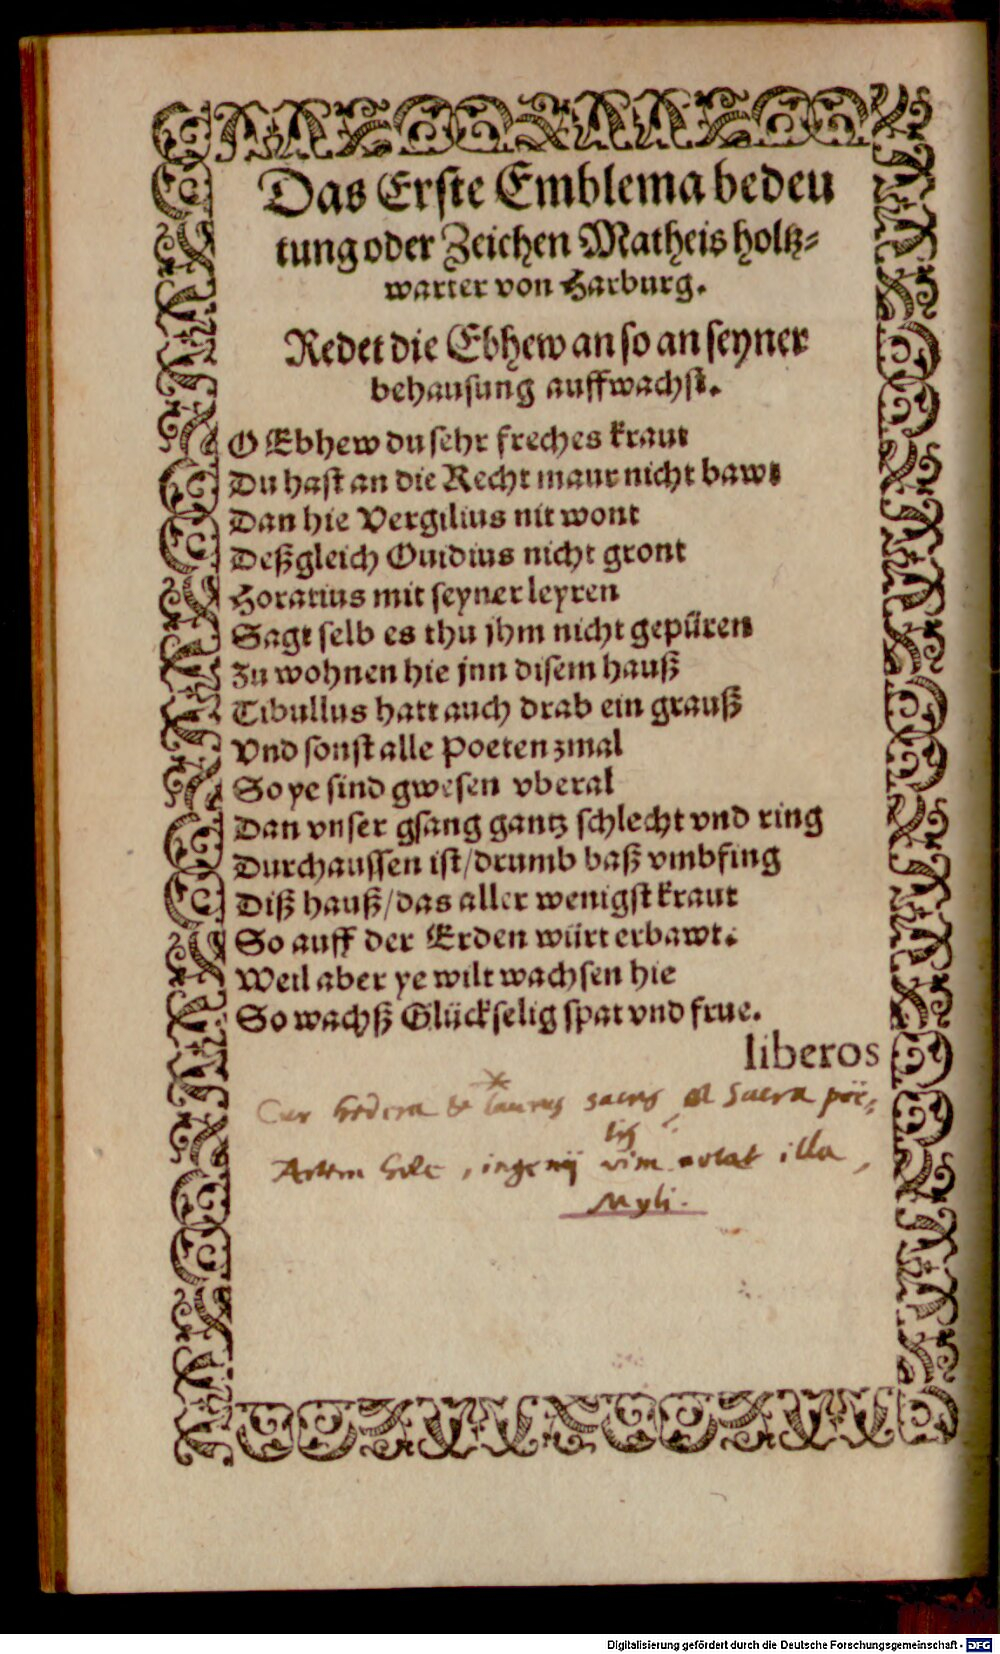 Das Erste Emblema bedeu
tung oder Zeichen Matheis holtz=
warter von Harburg.
Redet die Ebhew an so an seyner
behausung auffwachst.
O Ebhew du sehr freches kraut
Du hast an die Recht maur nicht bawt
Dan hie Vergilius nit wont
Deßgleich Ouidius nicht gront
Horatius mit seyner leyren
Sagt selb es thu jhm nicht gepüren
Zu wohnen hie jnn disem hauß
Tibullus hatt auch drab ein grauß
Vnd sonst alle Poeten zmal
So ye sind gwesen vberal
Dan vnser gsang gantz schlecht vnd ring
Durchaussen ist/drumb baß vmbfing
Diß hauß/das aller wenigst kraut
So auff der Erden würt erbawt.
Weil aber ye wilt wachsen hie
So wachß Glückselig spat vnd frue.
liberos
Cur hedera & laurus sacra poë=
tis
Artem , ingenij vim notat illa,
Myli.
Digitalisierung gefördert durch die Deutsche Forschungsgemeinschaft - DFG